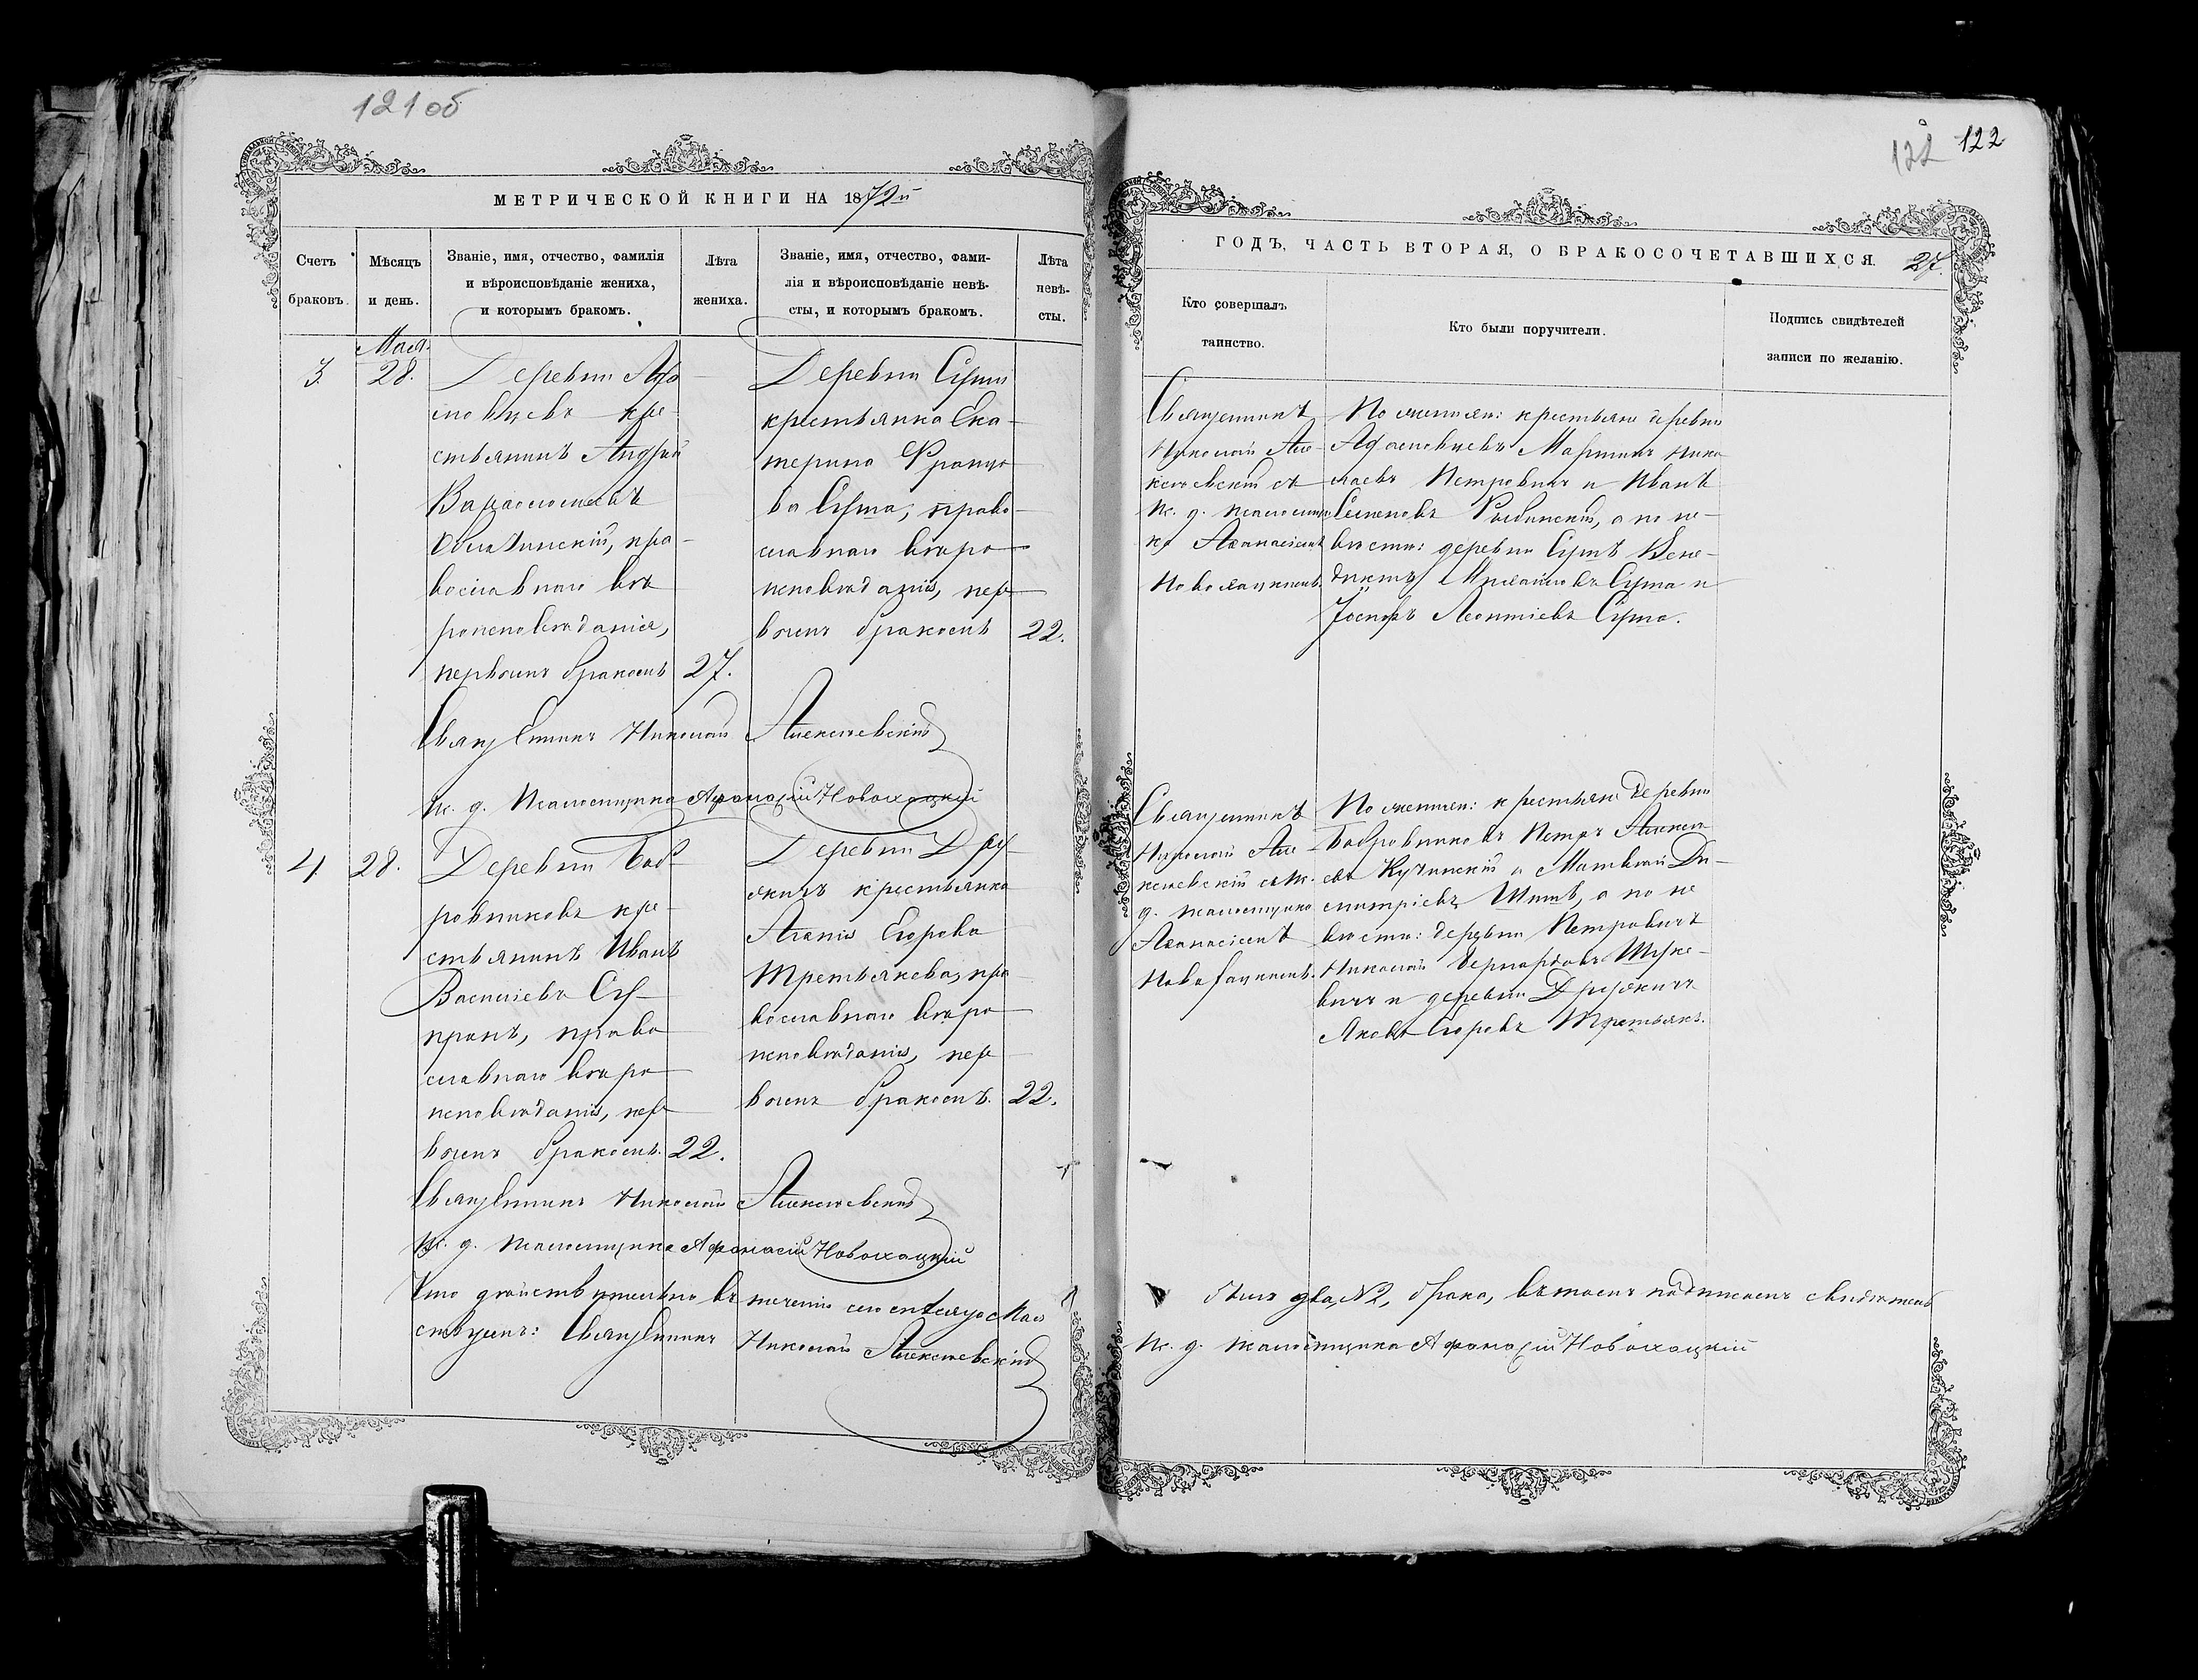 121 об
МЕТРИЧЕСКОЙ КНИГИ НА 1872й
Счетъ браковъ.
Мѣсяцъ и день.
Званіе, имя, отчество, фамилія
и вѣроисповѣданіе жениха,
и которымъ бракомъ.
Лѣта
жениха.
Званіе, имя, отчество, фами-
лія и вѣроисповѣданіе невѣ-
сты, и которымъ бракомъ.
Лѣта
невѣ-
сты.
3.
Мая
28.
Деревни
кре-
стьянинъ Андрей
пра-
вославнаго вѣ
роисповѣданія,
первымъ бракомъ
27.
Деревни
крестьянка Ека-
терина
ва право-
славнаго вѣро
исповѣданія, пер
вымъ бракомъ
22.
Священникъ Николай Алексѣевскій
И. д. псаломщика Афанасій Новохацкій
4
28.
Деревни Боб
ровниковъ кре-
стьянинъ Иванъ
Васильевъ Су-
пранъ, право
славнаго вѣро
исповѣданія, пер
вымъ бракомъ.
22.
Деревни
крестьянка
Агапія Егорова
Третьякова, пра
вославнаго вѣро
исповѣданія, пер
вымъ бракомъ.
22.
Священникъ Николай Алексѣевскій
И. д. псаломщика Афанасій Новохацкій
Что дѣйствительно въ теченіи сего мѣсяца Мая
Священникъ Николай Алексѣевскій
122 122
ГОДЪ, ЧАСТЬ ВТОРАЯ, О БРАКОСОЧЕТАВШИХСЯ
27.
Кто совершалъ
таинство.
Кто были поручители.
Подпись свидѣтелей
записи по желанію.
Священникъ
Николай Але-
ксѣевскій съ
И. д. псаломщи
ка Афанасіемъ
Новохацкимъ.
По женихѣ: крестьяне деревни
Мартинъ Нико
лаевъ Петровичъ и Иванъ
Семеновъ а по не-
вѣстѣ: деревни Вене-
диктъ Михайловъ и
Іосифъ Леонтіевъ
Священникъ
Николай Але-
ксѣевскій съ И.
д. псаломщика
Афанасіемъ
Новохацкимъ.
По женихѣ: крестьяне деревни
Бобровниковъ Петръ Алексѣ
евъ Кучинскій и Матвѣй Ди-
митріевъ а по не
вѣстѣ: деревни Петровичъ
Николай Бернардовъ
вичъ и деревни
Яковъ Егоровъ Третьякъ.
было два, №2, брака, въ томъ подписомъ свидѣтель
И. д. псаломщика Афанасій Новохацкій